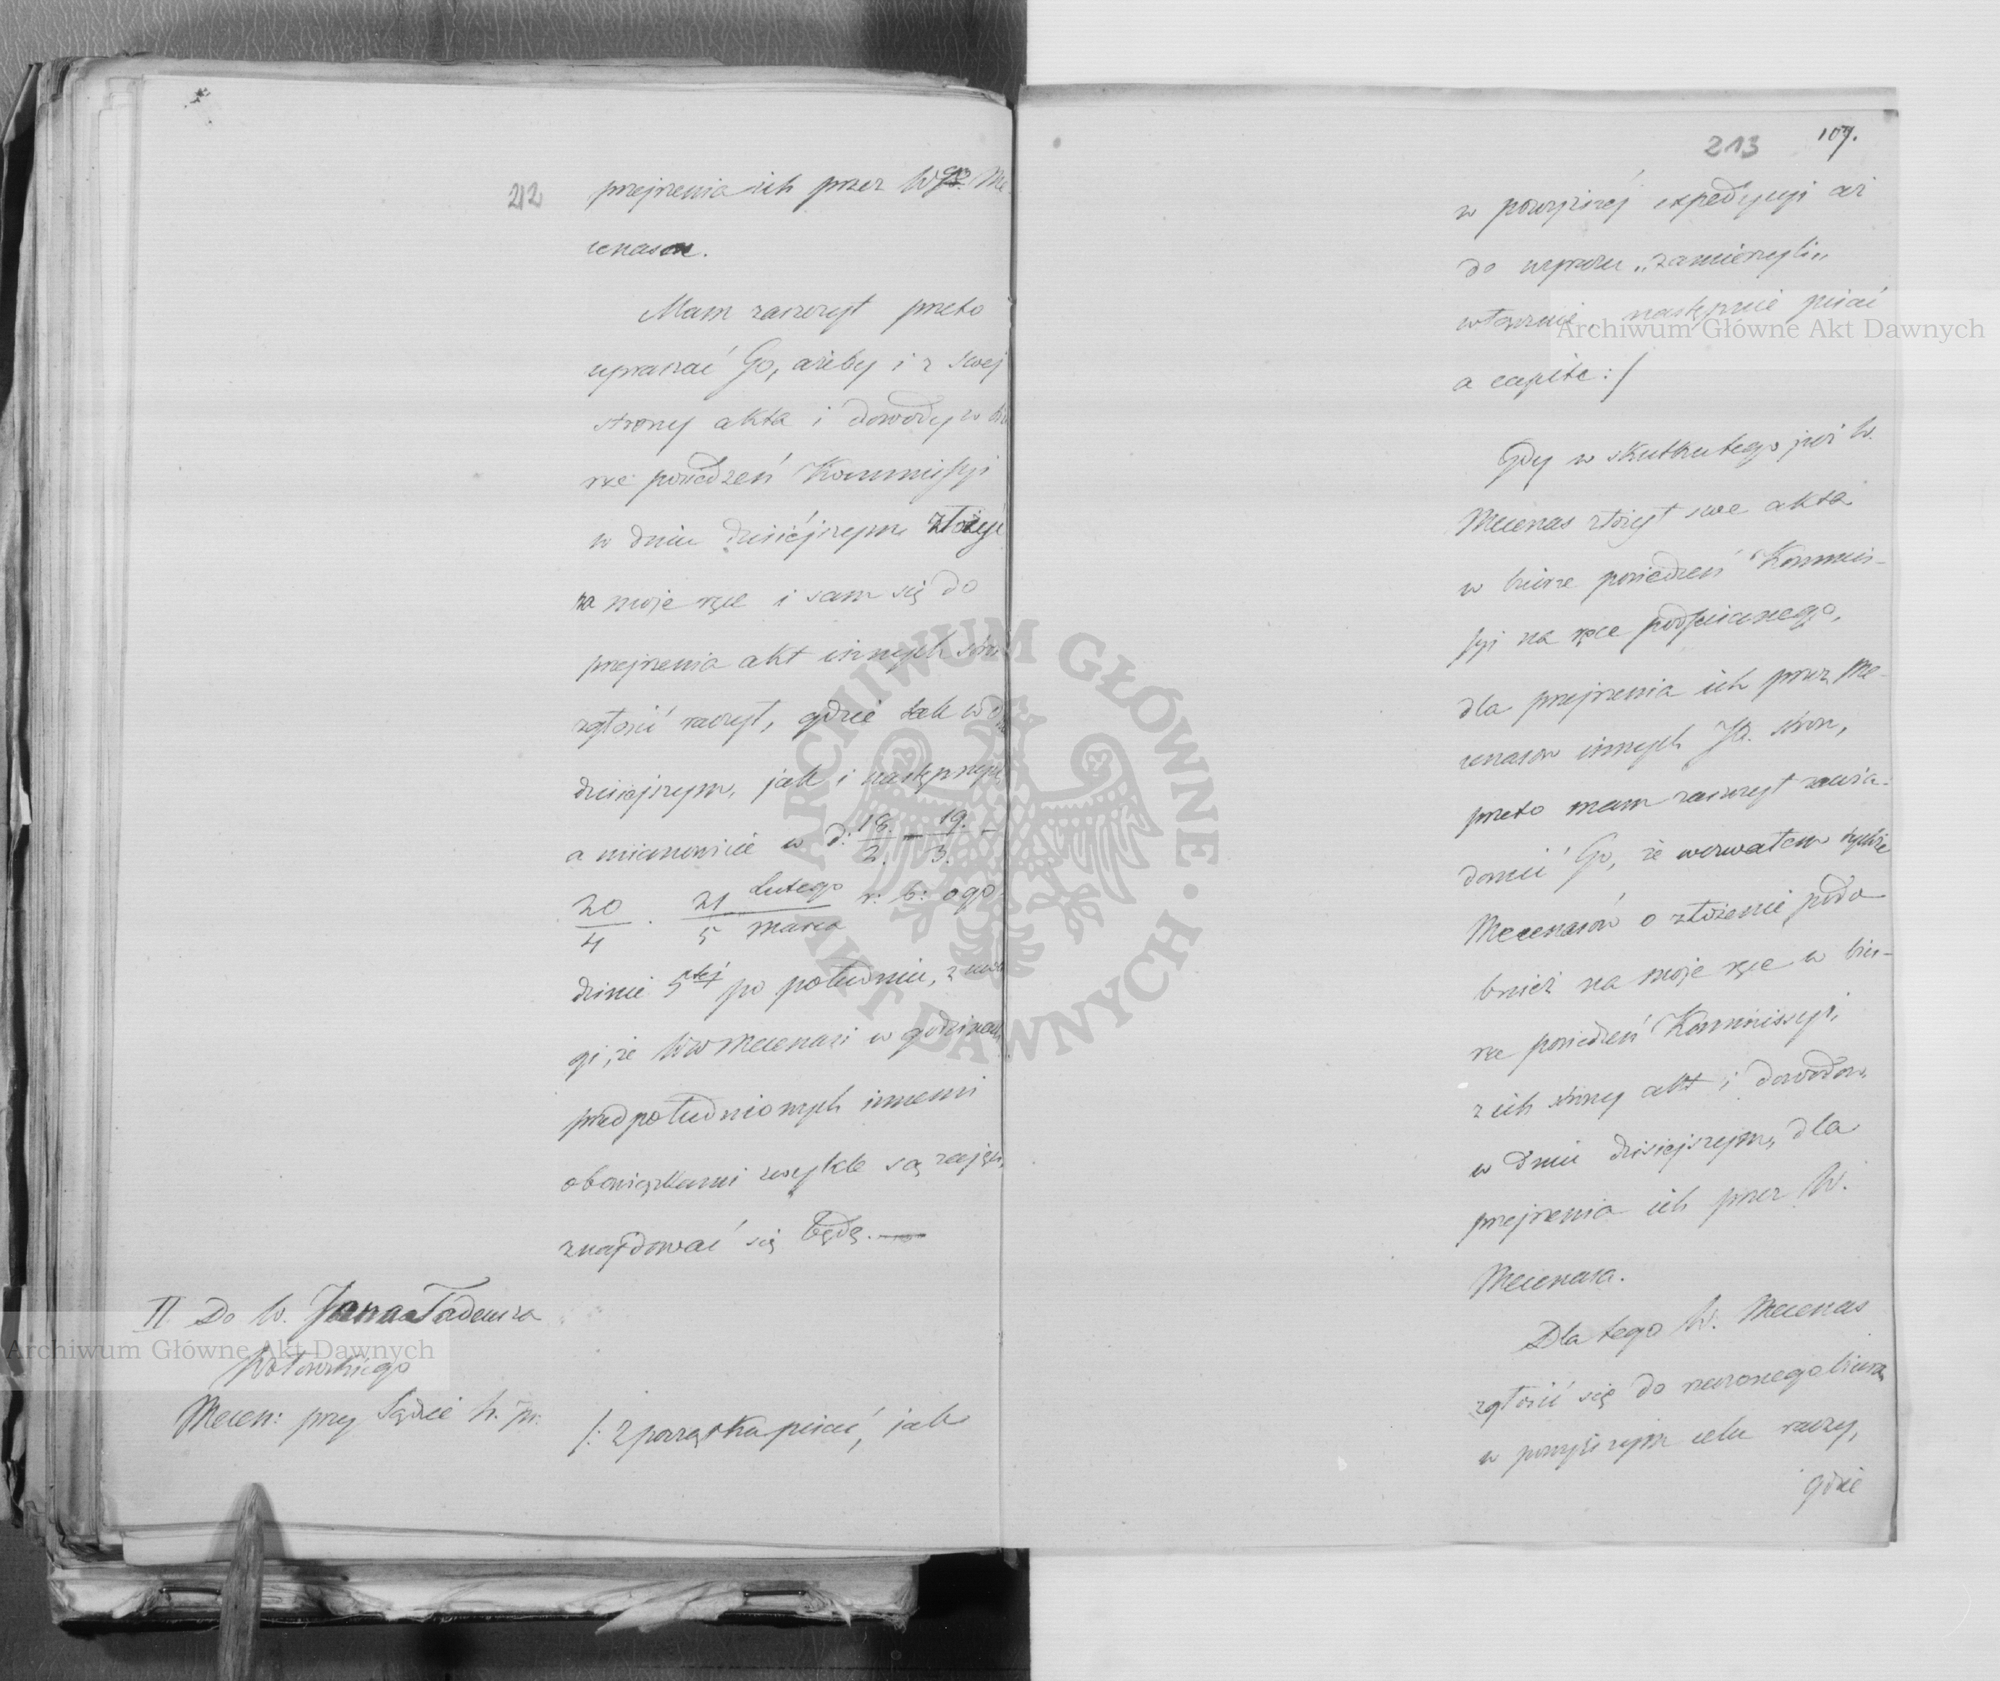 212
przejrzenia ich przez Wgo Me-
cenasa.
Mam zaszczyt przeto
upraszać Go, ażeby i z swej
strony akta i dowody w biu
rze posiedzeń Kommissyi
w dniu dzisiéjszym złożyć
na moje ręce i sam się do
przejrzenia akt innych stron
zgłosić raczył, gdzie tak w dn
dzisiejszym, jak i następnych
a mianowicie w d: 18./2. – 19./3. –
20/4 . 21 Lutego/5 Marca r: b: o go-
dzinie 5tej po południu, z uwa
gi, że WW Mecenasi w godzinach
przedpołudniowych innemi
obowiązkami zwykle są zajęci,
znajdować się będę.
II Do W. Jana Tadeusza
Wołowskiego
Mecen: przy Sądzie
/: Z początku pisać, jak
213 107.
w powyższéj expedycyi aż
do wyrazu „zamierzyli„
włącznie, następnie pisać
a capite :/
Gdy w skutku tego już W.
Mecenas złożył swe akta
w biurze posiedzeń Kommis-
syi na ręce podpisanego,
dla przejrzenia ich przez Me-
cenasów innych stron,
przeto mam zaszczyt zawia-
domić Go, że wezwałem tychże
Mecenasów o złożenie podo
bnież na moje ręce w biu-
rze posiedzeń Kommissyi,
z ich strony akt i dowodów,
w dniu dzisiejszym, dla
przejrzenia ich przez W.
Mecenasa.
Dla tego W. Mecenas
zgłosić się do rzeczonego biura
w powyższym celu raczy,
gdzie
Archiwum Główne Akt Dawnych
Archiwum Główne Akt Dawnych
ARCHIWUM GŁÓWNE AKT DAWNYCH